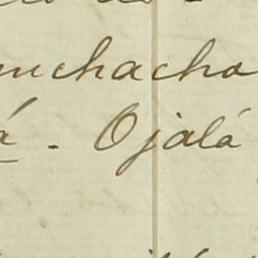 muchacho
á. Ojalá